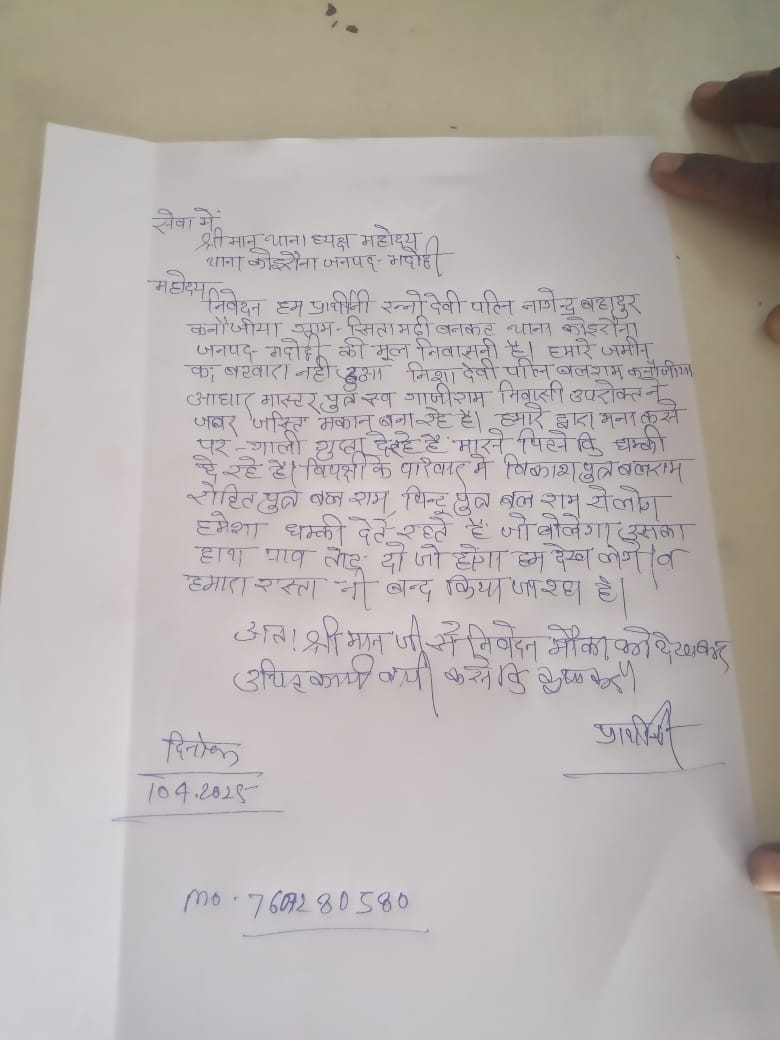 सेवा में
श्रीमान् थाना ध्यक्ष महोदय
थाना कोइरौना जनपद - भदोही
महोदय
निवेदन हम प्रार्थीनी रन्नो देवी पत्नि नागेन्द्र बहादुर
कनौजीया ग्राम - सितामढी बनकट थाना कोइरौना
जनपद भदोही की मूल निवासनी है। हमारे जमीन
का बटवारा नही हुआ निशा देवी पत्नि बलराम कनौजीया
आधार मास्टर पुत्र स्व गाजीराम निवासी उपरोक्त ने
जबर जस्ति मकान बना रहे है। हमारे द्वारा मना करने
पर गाली गुप्ता दे रहे है मारने पिटने कि धम्की
दे रहे है। विपक्षी के परिवार मे विकाश पुत्र बलराम
रोहित पुत्र बल राम, पिन्टू पुत्र बल राम ये लोग
हमेशा धम्की देते रहते है जो बोलेगा उसका
हाथ पाव तोड़ दो जो होगा हम देख लेगे। व
हमारा रास्ता भी बन्द किया जा रहा है।
अतः श्री मान जी से निवेदन मौका को देखकर
उचित कार्यावाही करने कि कृपा करें।
प्रार्थीनी
दिनांक
10 4.2025
mo. 7607280580